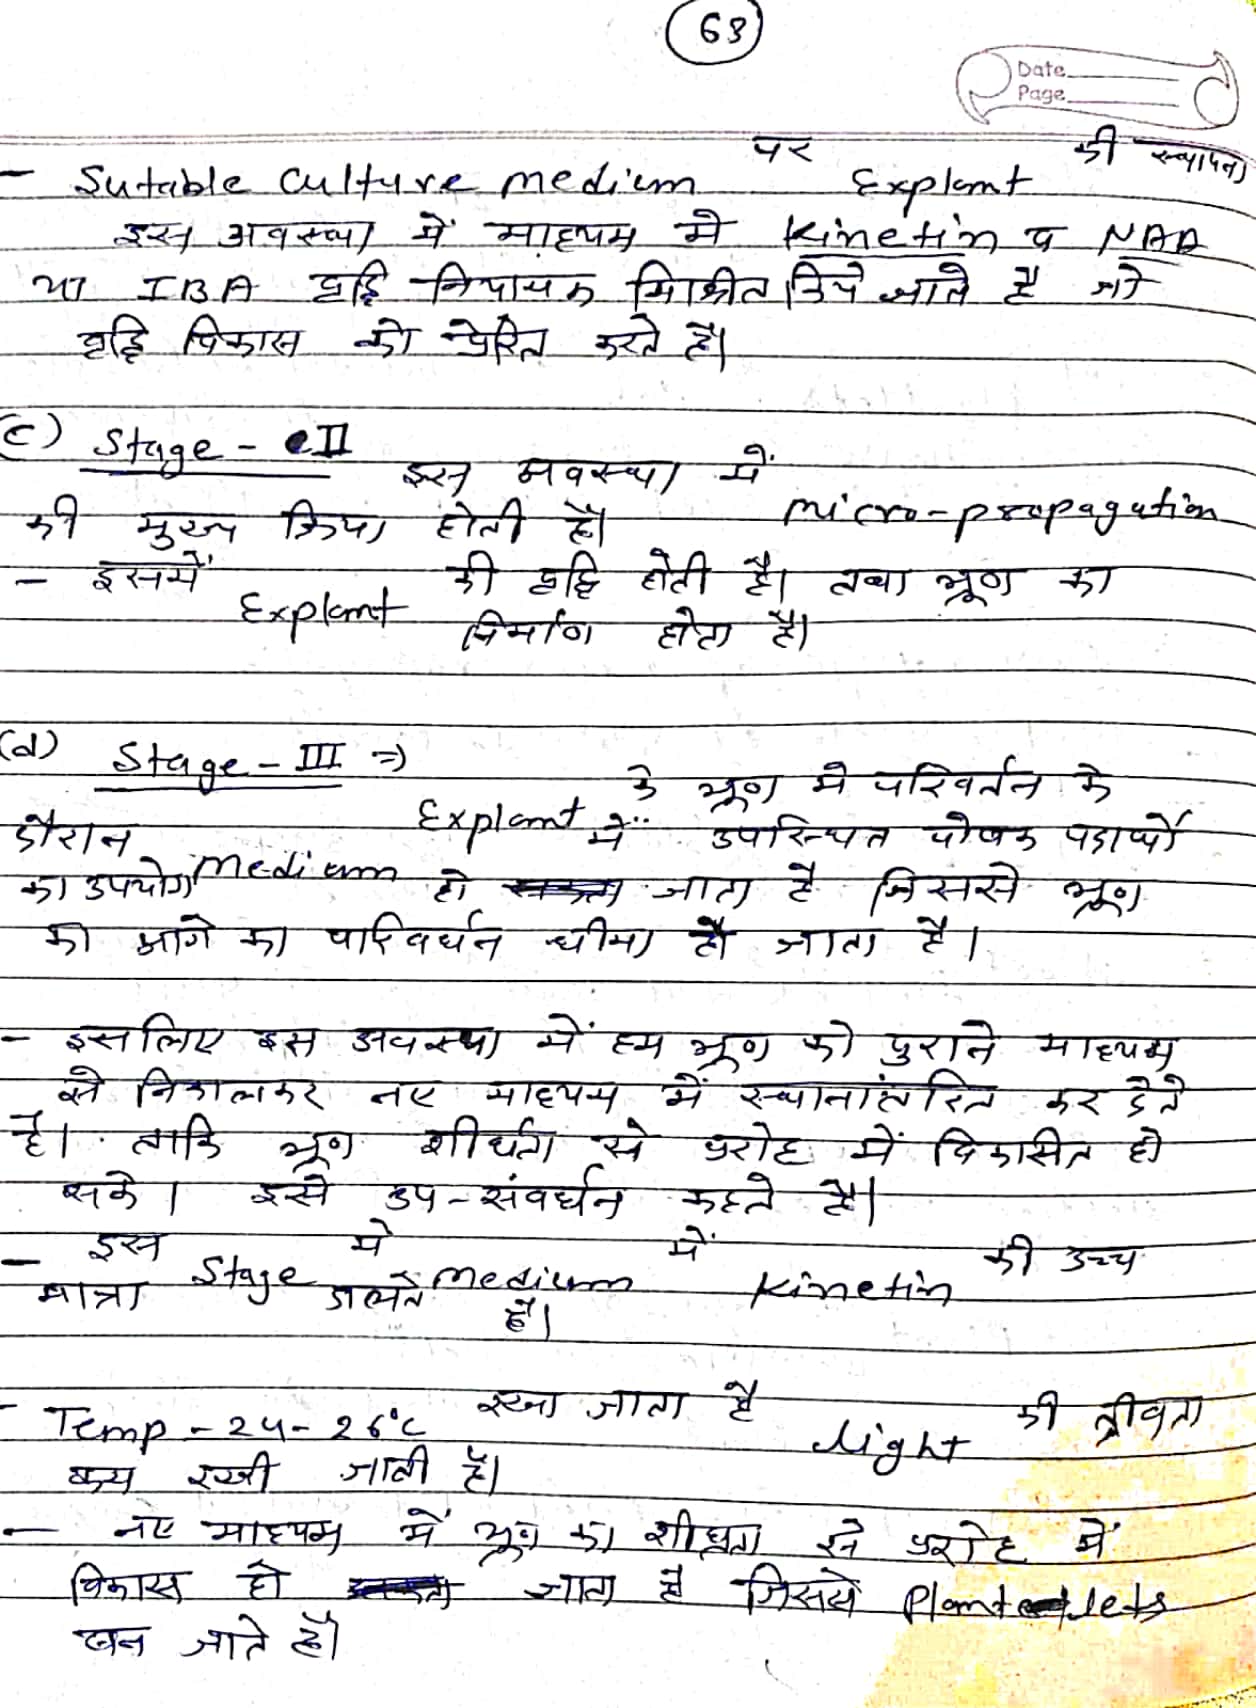 63
Date
Page
- Sutable Culture medium पर Explant की स्थापना
इस अवस्था में माध्यम मे Kinetin व NAA
या IBA वृद्धि नियामक मिश्रीत किये जाते है जो
वृद्धि विकास को प्रेरित करते है।
(c) Stage - II
इस अवस्था में micro-propagation
की मुख्य क्रिया होती है।
- इसमें Explant की वृद्धि होती है। तथा भ्रूण का
निर्माण होता है।
(d) Stage - III ⇒
Explant के भ्रूण मे परिवर्तन के
दौरान medium में उपस्थित पोषक पदार्थों
का उपयोग हो जाता है जिससे भ्रूण
का आगे का परिवर्धन धीमा हो जाता है।
- इसलिए इस अवस्था में हम भ्रूण को पुराने माध्यम
से निकालकर नए माध्यम में स्थानांतरित कर देते
है। ताकि भ्रूण शीर्घता से प्ररोह में विकासित हो
सके। इसे उप-संवर्धन कहते है।
- इस Stage मे medium में Kinetin की उच्च
मात्रा डालते है।
- Temp - 24-26°C रखा जाता है light की तीव्रता
कम रखी जाती है।
- नए माध्यम में भ्रूण का शीघ्रता से प्ररोह में
विकास हो जाता है जिससे Plantlets
बन जाते है।